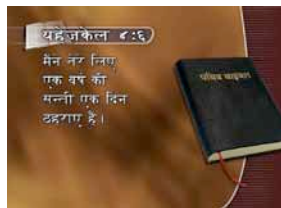 यहेजकेल ४:६
मैंने तेरे लिए
एक वर्ष की
सन्ती एक दिन
ठहराए है।
पवित्र बाइबल